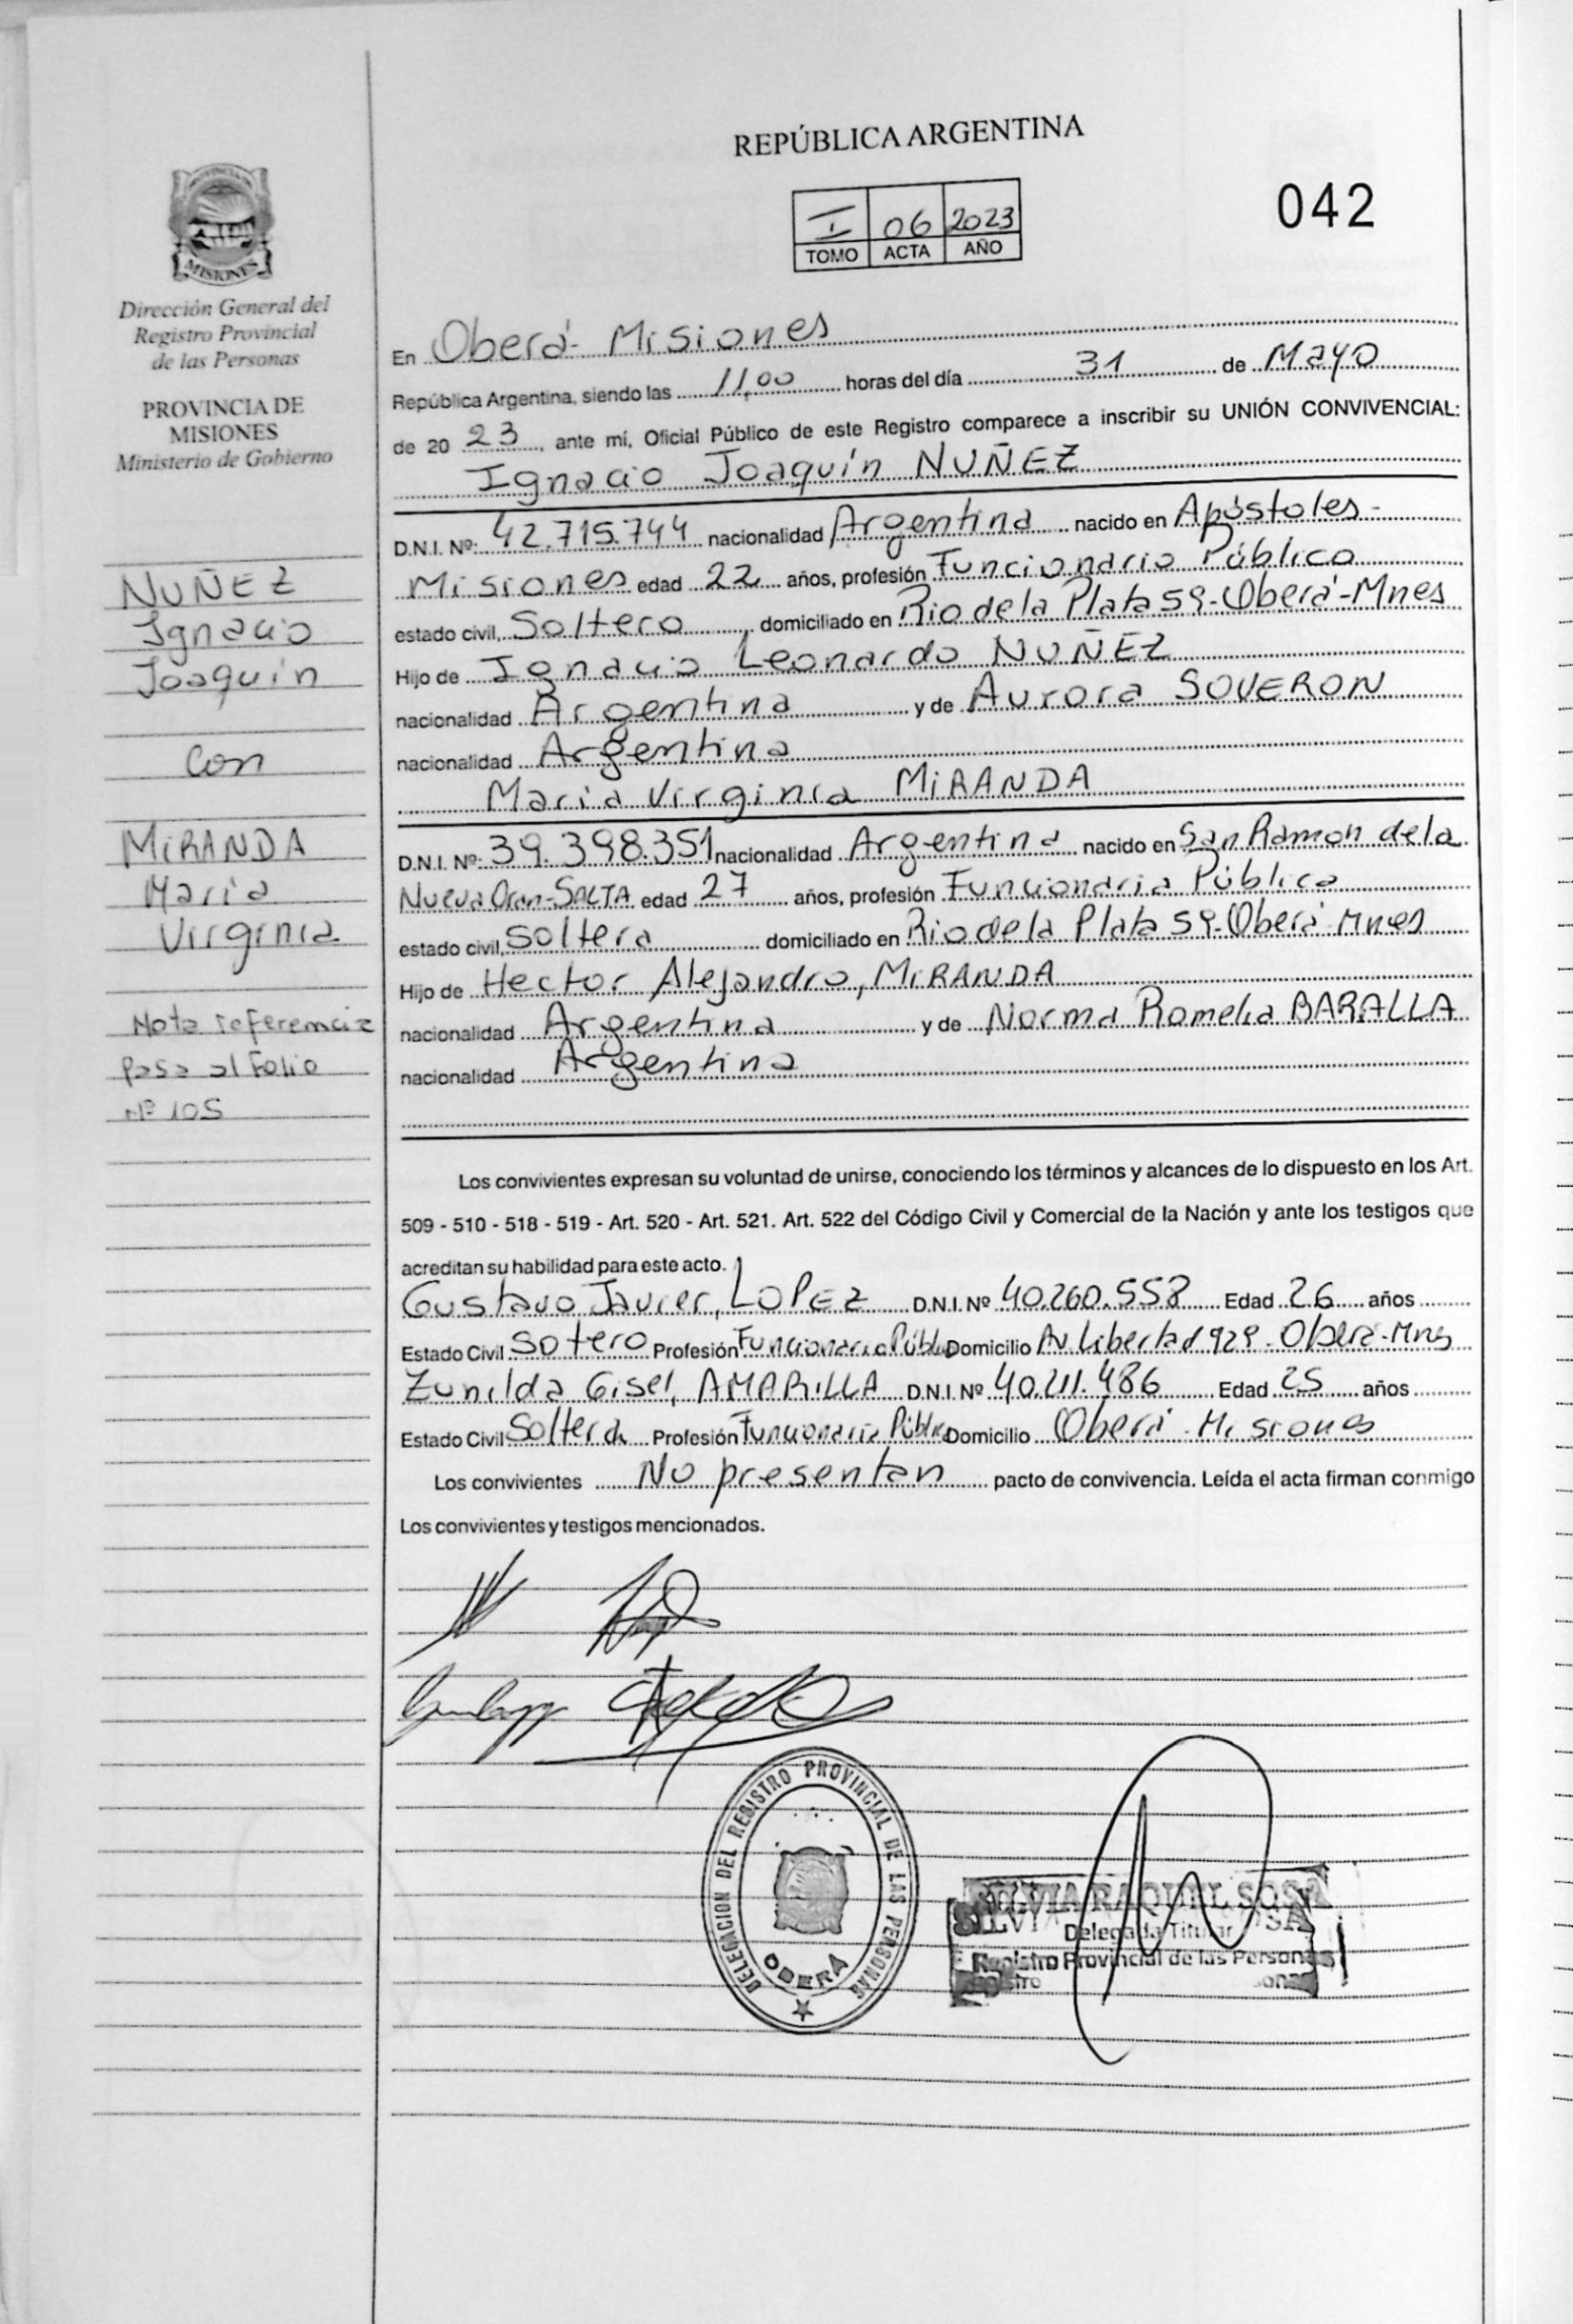 REPÚBLICA ARGENTINA
042
I 06 2023
TOMO ACTA AÑO
PROVINCIA DE
MISIONES
Dirección General del
Registro Provincial
de las Personas
PROVINCIA DE
MISIONES
Ministerio de Gobierno
NUÑEZ
Ignacio
Joaquín
con
MIRANDA
María
Virginia
Nota referencia
pasa al Folio
Nº 105
En Oberá- Misiones
República Argentina, siendo las 11,00 horas del día 31 de Mayo
de 20 23, ante mí, Oficial Público de este Registro comparece a inscribir su UNIÓN CONVIVENCIAL:
Ignacio Joaquín NUÑEZ
D.N.I. Nº: 42.715.744 nacionalidad Argentina nacido en Apóstoles-
Misiones edad 22 años, profesión Funcionario Público
estado civil, Soltero, domiciliado en Rio de la Plata 59-Oberá-Mnes
Hijo de Ignacio Leonardo NUÑEZ
nacionalidad Argentina y de Aurora SOVERON
nacionalidad Argentina
María Virginia MIRANDA
D.N.I. Nº: 39.398.351 nacionalidad Argentina nacido en San Ramon de la
Nueva Oran-SALTA edad 27 años, profesión Funcionaria Pública
estado civil, Soltera domiciliado en Rio de la Plata 59-Oberá-Mnes
Hijo de Hector Alejandro, MIRANDA
nacionalidad Argentina y de Norma Romelia BARALLA
nacionalidad Argentina
Los convivientes expresan su voluntad de unirse, conociendo los términos y alcances de lo dispuesto en los Art.
509 - 510 - 518 - 519 - Art. 520 - Art. 521. Art. 522 del Código Civil y Comercial de la Nación y ante los testigos que
acreditan su habilidad para este acto.
Gustavo Javier, LOPEZ D.N.I. Nº 40.260.558 Edad 26 años
Estado Civil Sotero Profesión Funcionario Público Domicilio Av. Libertad 929-Oberá-Mnes
Zunilda Gisel, AMARILLA D.N.I. Nº 40.211.486 Edad 25 años
Estado Civil Soltera Profesión Funcionaria Pública Domicilio Oberá-Misiones
Los convivientes No presentan pacto de convivencia. Leída el acta firman conmigo
Los convivientes y testigos mencionados.
DELEGACION DEL REGISTRO PROVINCIAL DE LAS PERSONAS
OBERÁ
SILVIA RAQUEL SOSA
Delegada Titular
Registro Provincial de las Personas